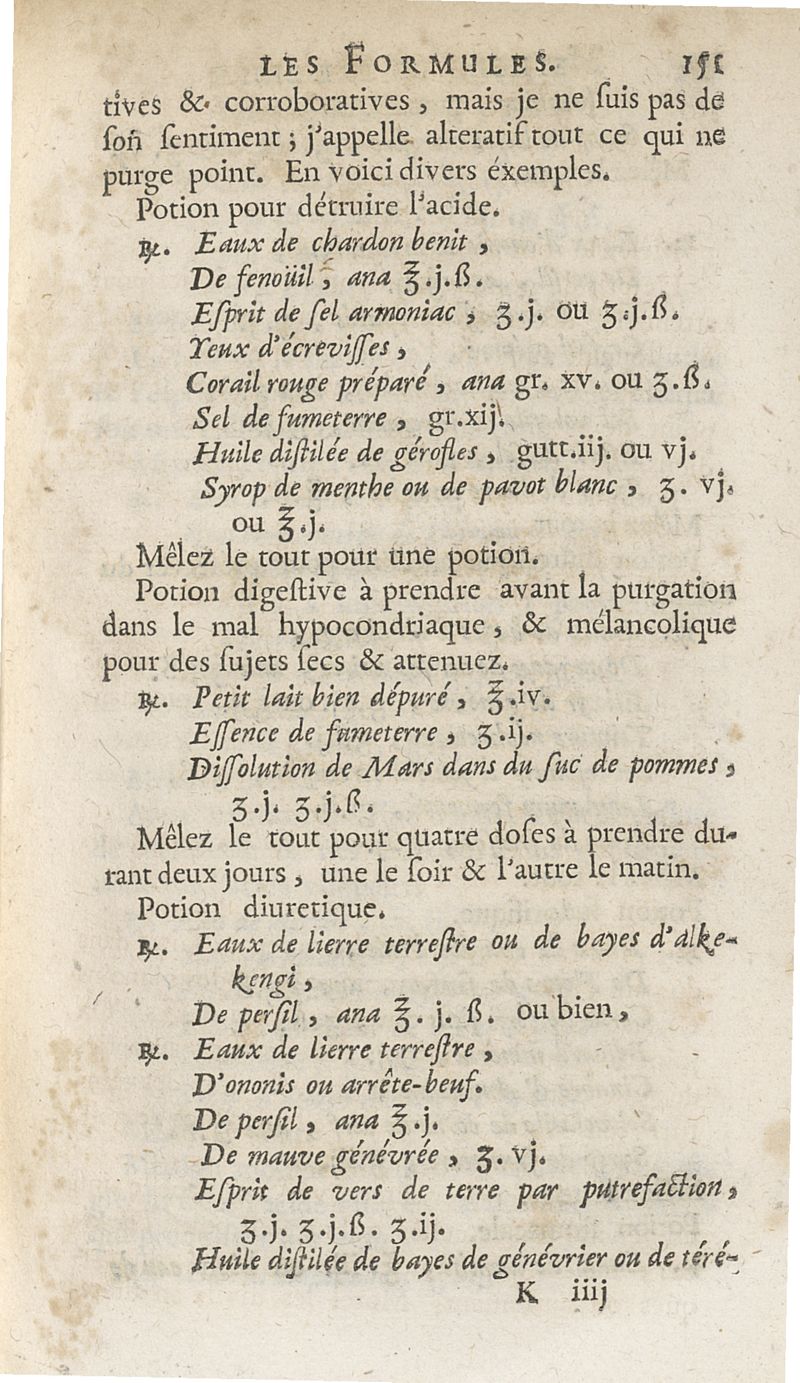 LES FORMULES. 151
tives & corroboratives, mais je ne ſuis pas de
ſon ſentiment ; j'appelle alteratif tout ce qui ne
purge point. En voici divers éxemples.
Potion pour détruire l'acide.
℞. Eaux de chardon benit,
De fenoüil, ana ℥.j.ß.
Eſprit de ſel armoniac, ʒ.j. ou ʒ.j.ß.
Yeux d'écreviſſes,
Corail rouge préparé, ana gr. xv. ou ʒ.ß.
Sel de fumeterre, gr.xij.
Huile diſtilée de gérofles, gutt.iij. ou vj.
Syrop de menthe ou de pavot blanc, ʒ. vj.
ou ℥.j.
Mêlez le tout pour une potion.
Potion digeſtive à prendre avant la purgation
dans le mal hypocondriaque, & mélancolique
pour des ſujets ſecs & attenuez.
℞. Petit lait bien dépuré, ℥.iv.
Eſſence de fumeterre, ʒ.ij.
Diſſolution de Mars dans du ſuc de pommes,
ʒ.j. ʒ.j.ß.
Mêlez le tout pour quatre doſes à prendre du-
rant deux jours, une le ſoir & l'autre le matin.
Potion diuretique.
℞. Eaux de lierre terreſtre ou de bayes d'alke-
kengi,
De perſil, ana ℥. j. ß. ou bien,
℞. Eaux de lierre terreſtre,
D'ononis ou arrête-beuf.
De perſil, ana ℥.j.
De mauve génévrée, ʒ. vj.
Eſprit de vers de terre par putrefaction,
ʒ.j. ʒ.j.ß. ʒ.ij.
Huile diſtilée de bayes de génévrier ou de téré-
K iiij